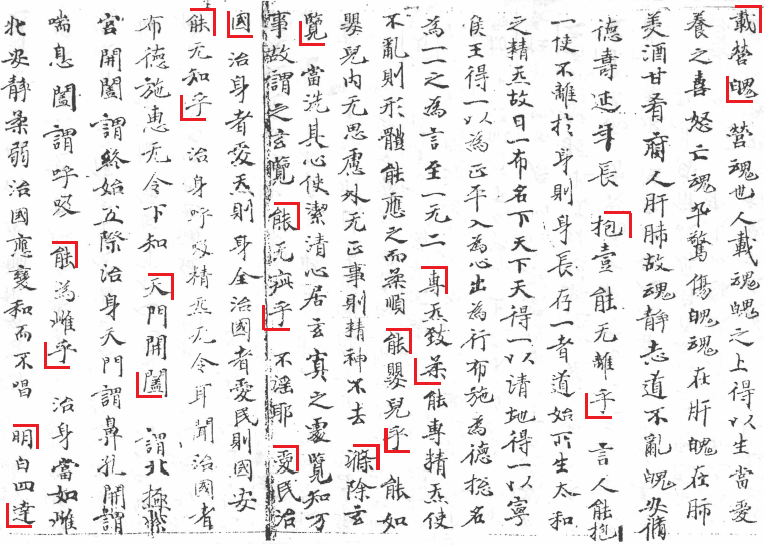 載營魄 營魂也人載魂魄之上得以生當愛
養之喜怒亡魂卒驚傷魄魂在肝魄在肺
美酒甘肴腐人肝肺故魂靜志道不亂魄安脩
德壽延年長 抱壹能无離乎 言人能抱
一使不離於身則身長存一者道始所生太和
之精炁故曰一布名下天下天得一以清地得一以寧
侯王得一以為正平入為心出為行布施為德揔名
為一一之為言至一无二 專炁致柔 能專精炁使
不亂則形體能應之而柔順 能嬰兒乎 能如
嬰兒內无思慮外无正事則精神不去 滌除玄
覽 當洗其心使潔清心居玄寘之處覽知万
事故謂之玄覽 能无疵乎 不谣耶 愛民治
國 治身者愛炁則身全治國者愛民則國安
能无知乎 治身呼吸精炁无令耳聞治國者
布德施惠无令下知 天門開闔 謂北極紫
宮開闔謂終始五際治身天門謂鼻孔開謂
喘息闔謂呼吸 能為雌乎 治身當如雌
北安靜柔弱治國應變和而不唱 明白四達